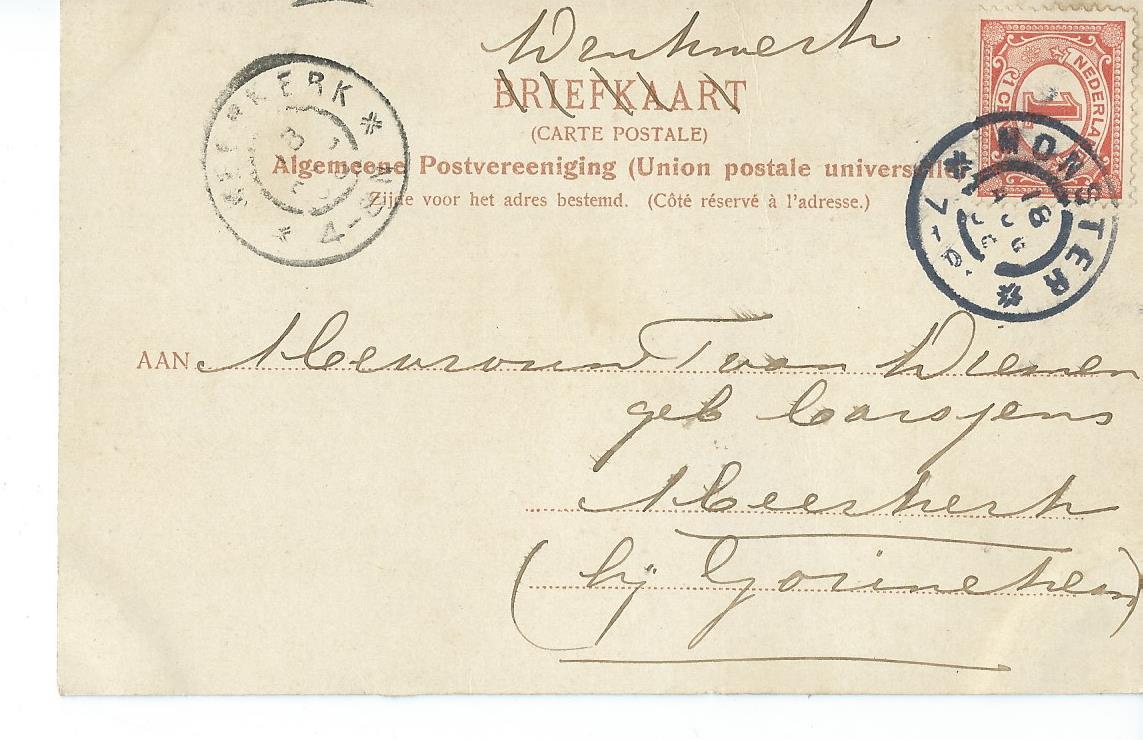 Drukwerk
BRIEFKAART
(CARTE POSTALE)
Algemeene Postvereeniging (Union postale universelle)
Zijde voor het adres bestemd. (Côté réservé à l'adresse.)
NEDERLAND
1
1 CENT
MEERKERK
4-8N
MONSTER
18
7-8
AAN Mevrouw T van Dienen
geb Carsjens
Meerkerk
(bij Gorinchem)